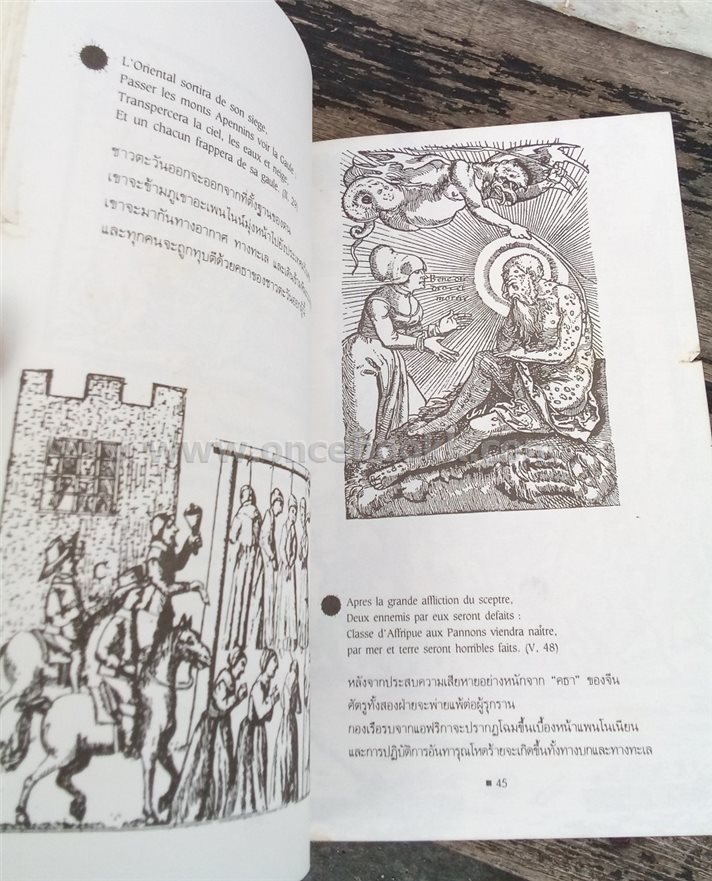 L'Oriental sortira de son siege,
Passer les monts Apennins voir la Gaule :
Transpercera la ciel, les eaux et neige,
Et un chacun frappera de sa gaule. (II. 29)
ชาวตะวันออกจะออกจากที่ตั้งฐานของตน
เขาจะข้ามภูเขาอะเพนไนน์มุ่งหน้าไปยัง
เขาจะมากันทางอากาศ ทางทะเล และ
และทุกคนจะถูกทุบตีด้วยคธาของชาวตะวันออก
Apres la grande affliction du sceptre,
Deux ennemis par eux seront defaits :
Classe d'Affripue aux Pannons viendra naître,
par mer et terre seront horribles faits. (V. 48)
หลังจากประสบความเสียหายอย่างหนักจาก “คธา” ของจีน
ศัตรูทั้งสองฝ่ายจะพ่ายแพ้ต่อผู้รุกราน
กองเรือรบจากแอฟริกาจะปรากฏโฉมขึ้นเบื้องหน้าแพนโนเนียน
และการปฏิบัติการอันทารุณโหดร้ายจะเกิดขึ้นทั้งทางบกและทางทะเล
45